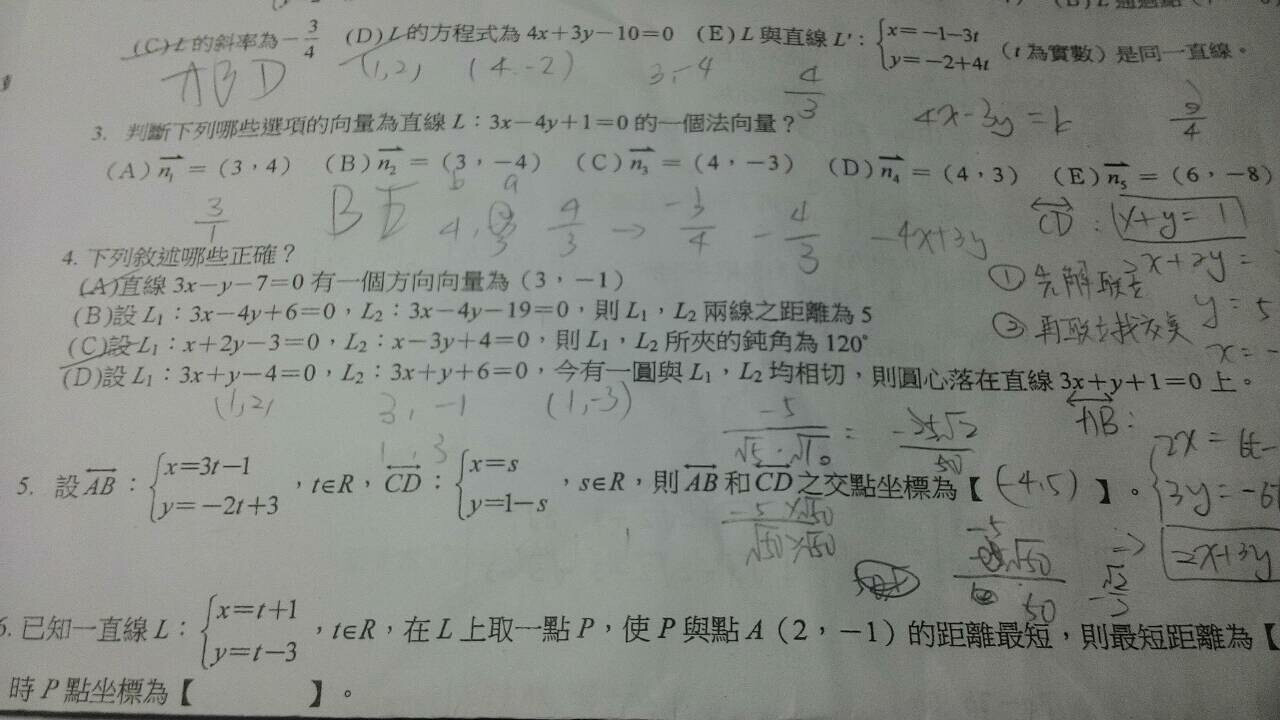 (C) L 的斜率為 -3/4 (D) L 的方程式為 4x+3y-10=0 (E) L 與直線 L'：{x=-1-3t, y=-2+4t (t 為實數) 是同一直線。
ABD (1,2) (4-2) 3,-4 4/3 4x-3y=k
3. 判斷下列哪些選項的向量為直線 L：3x-4y+1=0 的一個法向量？
(A) n₁=(3，4) (B) n₂=(3，-4) (C) n₃=(4，-3) (D) n₄=(4，3) (E) n₅=(6，-8)
3/1 BE b a 4/3 → -3/4 -4/3 -4x+3y CD：x+y=1
4. 下列敘述哪些正確？
① 先解聯立 x+2y=
(A)直線 3x-y-7=0 有一個方向向量為 (3，-1)
y=5
(B)設 L₁：3x-4y+6=0，L₂：3x-4y-19=0，則 L₁，L₂ 兩線之距離為 5
② 再聯立找交點
(C)設 L₁：x+2y-3=0，L₂：x-3y+4=0，則 L₁，L₂ 所夾的鈍角為 120°
x=-
(D)設 L₁：3x+y-4=0，L₂：3x+y+6=0，今有一圓與 L₁，L₂ 均相切，則圓心落在直線 3x+y+1=0 上。
(1,2, 3,-1 (1,-3) -5/√5·√10 = AB：
1,3
5. 設 AB：{x=3t-1, y=-2t+3，t∈R，CD：{x=s, y=1-s，s∈R，則 AB 和 CD 之交點坐標為【(-4,5)】。
{2x=6t- 3y=-6t
-5×√50/√50×√50 -5√50/50 → 2x+3y
6. 已知一直線 L：{x=t+1, y=t-3，t∈R，在 L 上取一點 P，使 P 與點 A (2，-1) 的距離最短，則最短距離為【
時 P 點坐標為【 】。